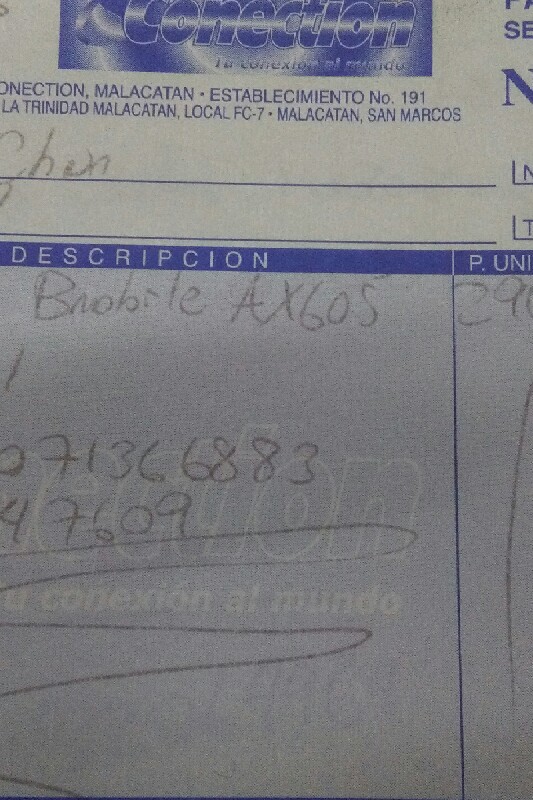 Conection
Tu conexión al mundo
PA
SE
ONECTION, MALACATAN • ESTABLECIMIENTO No. 191
LA TRINIDAD MALACATAN, LOCAL FC-7 • MALACATAN, SAN MARCOS
N
Chan
N
T
DESCRIPCION P. UNI
Bmobile AX605 290
1
071366883
47609
ection
Tu conexión al mundo